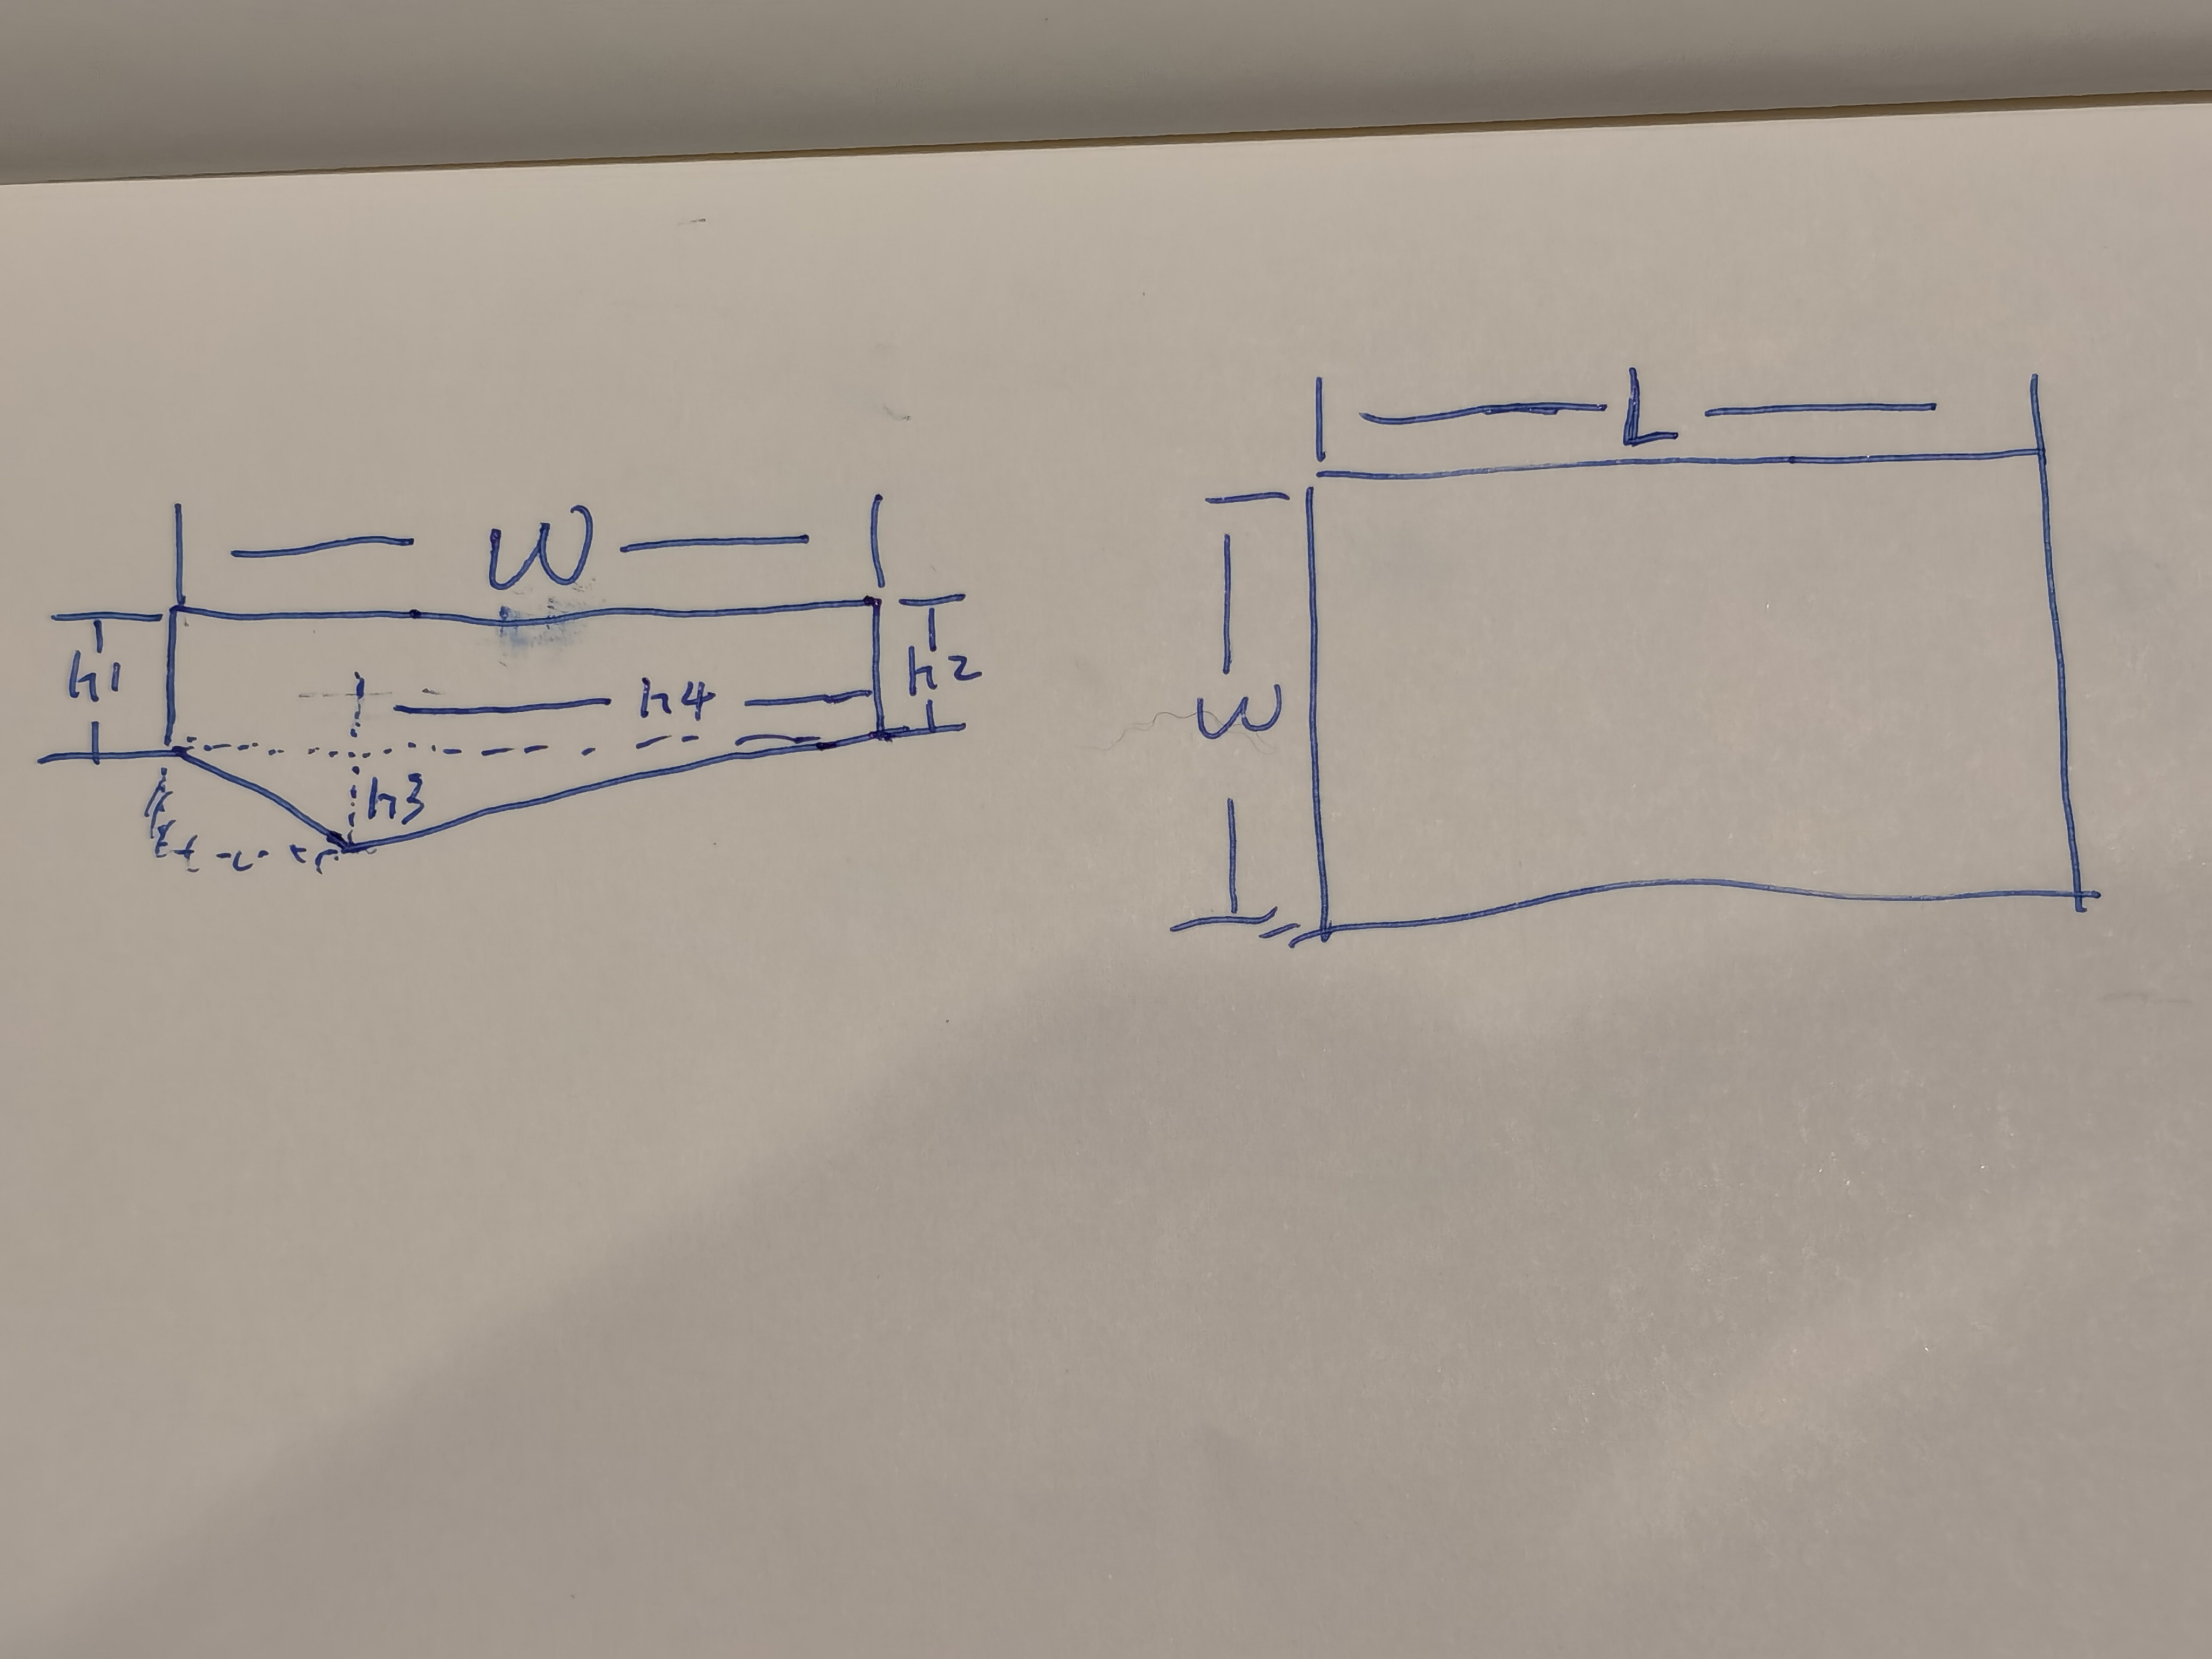 W
h1
h2
h4
h3
L
W